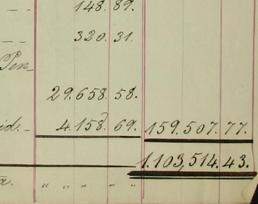 – – 148. 89.
– – 320. 31.
Pen-
29.658. 58.
id- 4.158. 69. 159.507. 77.
1.103,514. 43.
a. „ „ „ „